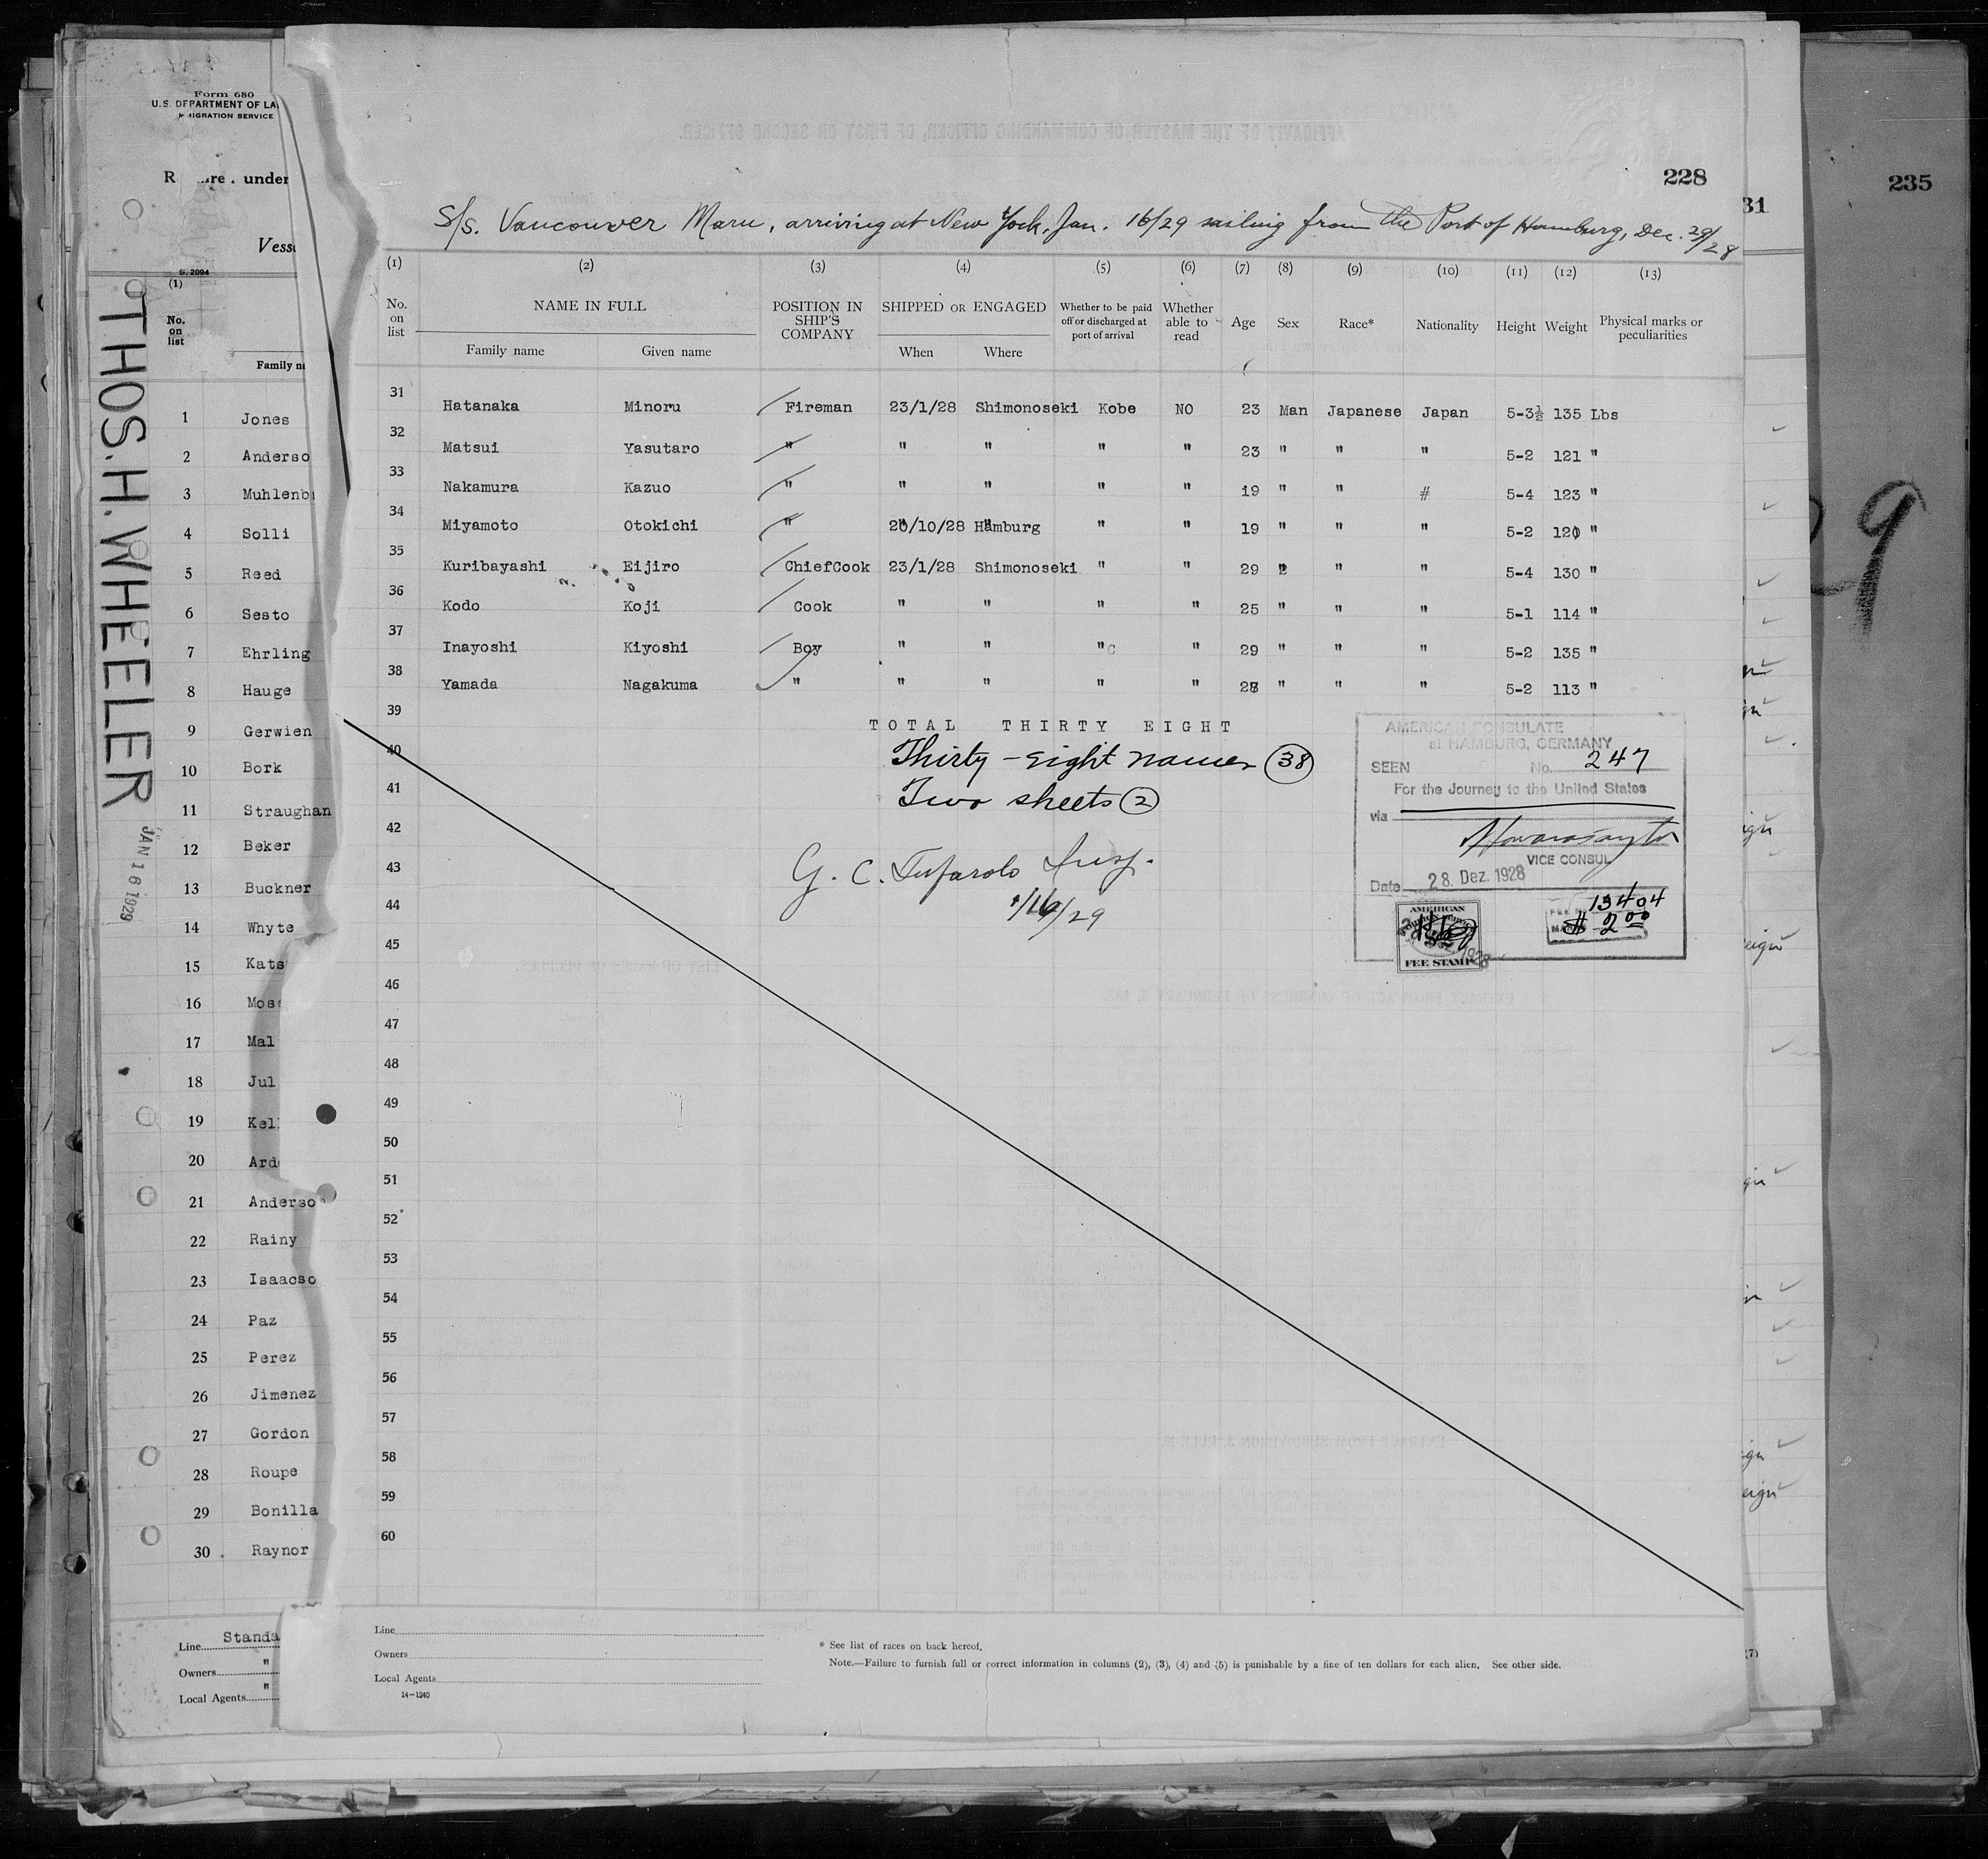 Form 680
U.S. DEPARTMENT OF LA
MIGRATION SERVICE
under
Vess
S. 2094
(1)
No. on list
Family na
THOS. H. WHEELER
JAN 16 1929
1 Jones
2 Anderso
3 Muhlenb
4 Solli
5 Reed
6 Sesto
7 Ehrling
8 Hauge
9 Gerwien
10 Bork
11 Straughan
12 Beker
13 Buckner
14 Whyte
15 Kats
16 Mos
17 Mal
18 Jul
19 Kel
20 Ard
21 Anderso
22 Rainy
23 Isaacso
24 Paz
25 Perez
26 Jimenez
27 Gordon
28 Roupe
29 Bonilla
30 Raynor
Line Standa
Owners "
Local Agents "
228
S/S. Vancouver Maru, arriving at New York, Jan. 16/29 sailing from the Port of Hamburg, Dec. 29/28
(1) (2) (3) (4) (5) (6) (7) (8) (9) (10) (11) (12) (13)
No. on list NAME IN FULL POSITION IN SHIP'S COMPANY SHIPPED OR ENGAGED Whether to be paid off or discharged at port of arrival Whether able to read Age Sex Race* Nationality Height Weight Physical marks or peculiarities
Family name Given name When Where
31 Hatanaka Minoru Fireman 23/1/28 Shimonoseki Kobe NO 23 Man Japanese Japan 5-3½ 135 Lbs
32 Matsui Yasutaro " " " " " 23 " " " 5-2 121 "
33 Nakamura Kazuo " " " " " 19 " " # 5-4 123 "
34 Miyamoto Otokichi " 20/10/28 Hamburg " " 19 " " " 5-2 120 "
35 Kuribayashi Eijiro ChiefCook 23/1/28 Shimonoseki " " 29 " " " 5-4 130 "
36 Kodo Koji Cook " " " " 25 " " " 5-1 114 "
37 Inayoshi Kiyoshi Boy " " " " 29 " " " 5-2 135 "
38 Yamada Nagakuma " " " " " 28 " " " 5-2 113 "
39
TOTAL THIRTY EIGHT
40
Thirty-eight names (38)
41
Two sheets (2)
42
43
G. C. Tufarolo Insp.
44
1/16/29
45
46
47
48
49
50
51
52
53
54
55
56
57
58
59
60
AMERICAN CONSULATE
at HAMBURG, GERMANY
SEEN No. 247
For the Journey to the United States
via
VICE CONSUL
Date 28. Dez. 1928
13404
$ 2 00
AMERICAN
FEE STAMP
Line
Owners
Local Agents
14-1240
* See list of races on back hereof.
Note.—Failure to furnish full or correct information in columns (2), (3), (4) and (5) is punishable by a fine of ten dollars for each alien. See other side.
31
235
9